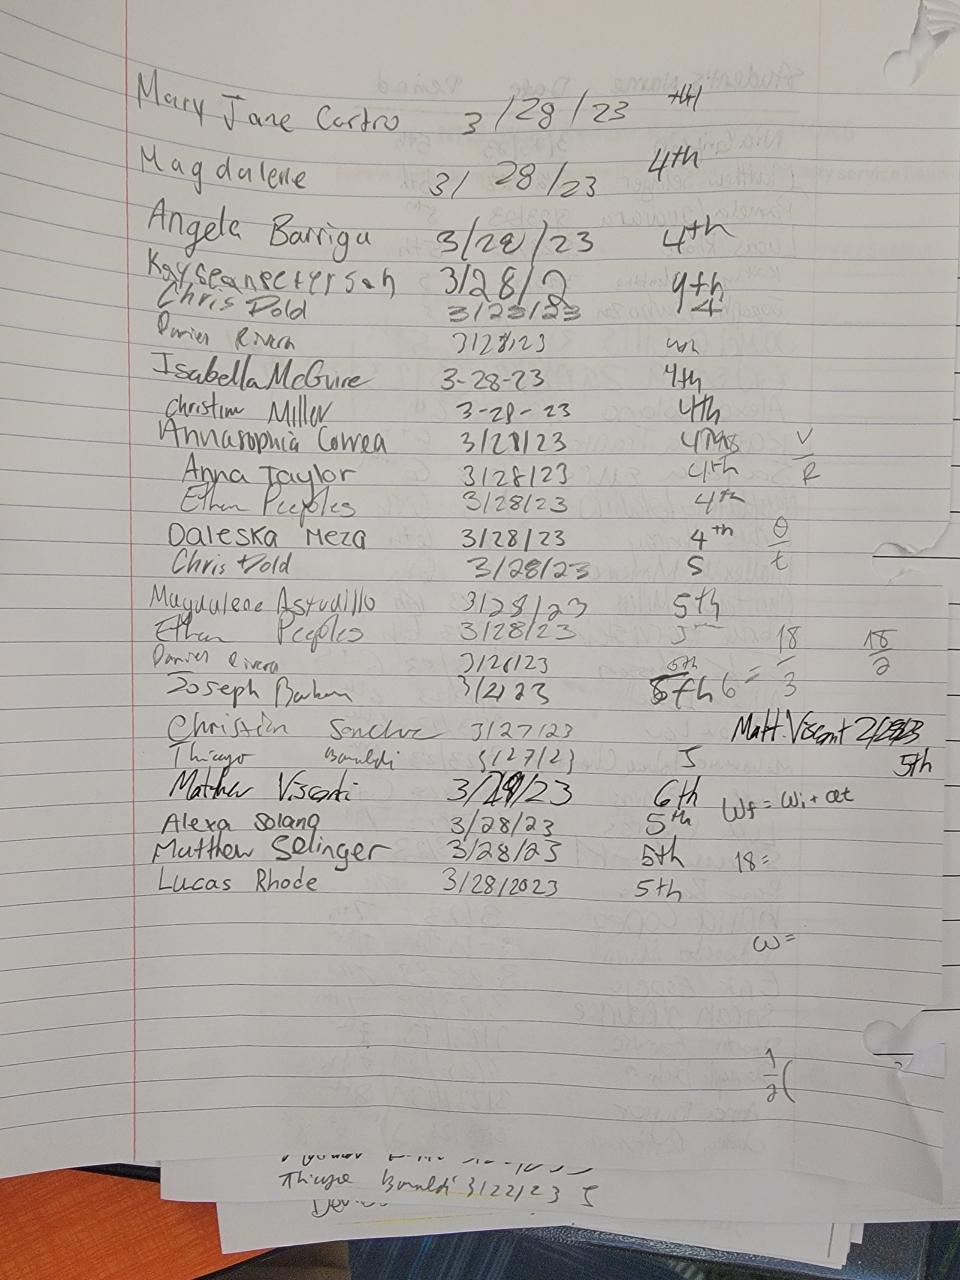 Mary Jane Castro 3/28/23 4th
Magdalene 3/28/23 4th
Angela Barriga 3/28/23 4th
3/28/2 4th
Chris Dold 3/23/23 4
Daniel Rivera 3/28/23 4th
Isabella McGuire 3-28-23 4th
Christina Miller 3-28-23 4th
Annasophia Correa 3/28/23
V/R
Anna Taylor 3/28/23 4th
Ethan Peeples 3/28/23 4th
Daleska Meza 3/28/23 4th
θ/t
Chris Dold 3/28/23 5
Magdalene Astudillo 3/28/23 5th
Ethan Peeples 3/28/23 5th
Daniel Rivera 3/28/23 5th
6 = 18/3 18/2
Joseph 5th
Christian 3/27/23
Matt Viscont 5th
Thiago Bonaldi 3/27/23 5
Matthew Visconti 23 6th
ωf = ωi + αt
Alexa Solano 3/28/23 5th
Matthew Selinger 3/28/23 5th
18 =
Lucas Rhode 3/28/2023 5th
ω =
1/2 (
Thiago Bonaldi 3/22/23 5